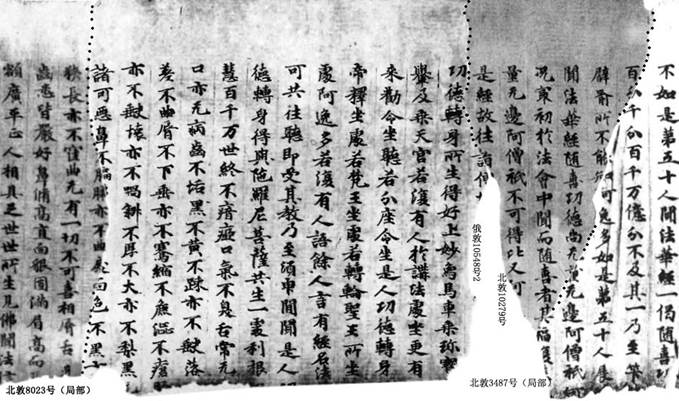 不如是第五十人聞法華經一偈隨喜功
百分千分百千万億分不及其一乃至筭
譬喻所不能知阿逸多如是第五十人展
聞法華經隨喜功德尚无量无邊阿僧祇何
况冣初於法會中聞而隨喜者其福復
量无邊阿僧祇不可得比又可
是經故往詣僧坊
功德轉身所生得好上妙烏馬車乘珎轝
轝及乘天宮若復有人於講法處坐更有
來勸令坐聽若分座令坐是人功德轉身
帝釋坐處若梵王坐處若轉輪聖王所坐
處阿逸多若復有人語餘人言有經名法
可共往聽即受其教乃至須申間聞是人
德轉身得與陁羅尼菩薩共生一處利根
慧百千万世終不瘖瘂口氣不臭舌常无
口亦无病齒不垢黑不黃不踈亦不缺落
差不曲脣不下垂亦不褰縮不麁澀不瘡
亦不缺壞亦不喎斜不厚不大亦不梨黑
諸可惡鼻不匾㔸亦不曲戾面色不黑
狹長亦不窪曲无有一切不可喜相脣舌
齒悉皆嚴好鼻脩高直面貌圓滿眉高而
額廣平正人相具足世世所生見佛聞法
俄敦10548号2
北敦10279号
北敦3487号（局部）
北敦8023号（局部）